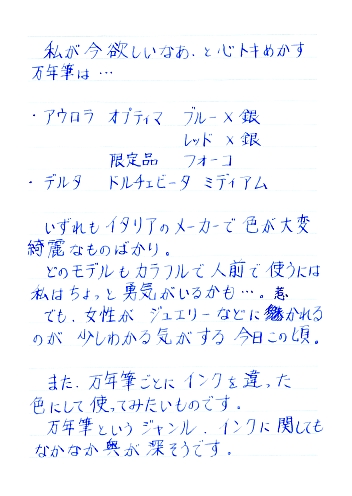 私が今欲しいなあ、と心トキめかす
万年筆は…
・アウロラ オプティマ ブルー×銀
レッド×銀
限定品 フォーコ
・デルタ ドルチェビータ ミディアム
いずれもイタリアのメーカーで色が大変
綺麗なものばかり。
どのモデルもカラフルで人前で使うには
私はちょっと勇気がいるかも…。
でも、女性が ジュエリーなどに惹かれる
のが 少しわかる気がする 今日この頃。
また、万年筆ごとにインクを違った
色にして使ってみたいものです。
万年筆というジャンル、インクに関しても
なかなか奥が深そうです。